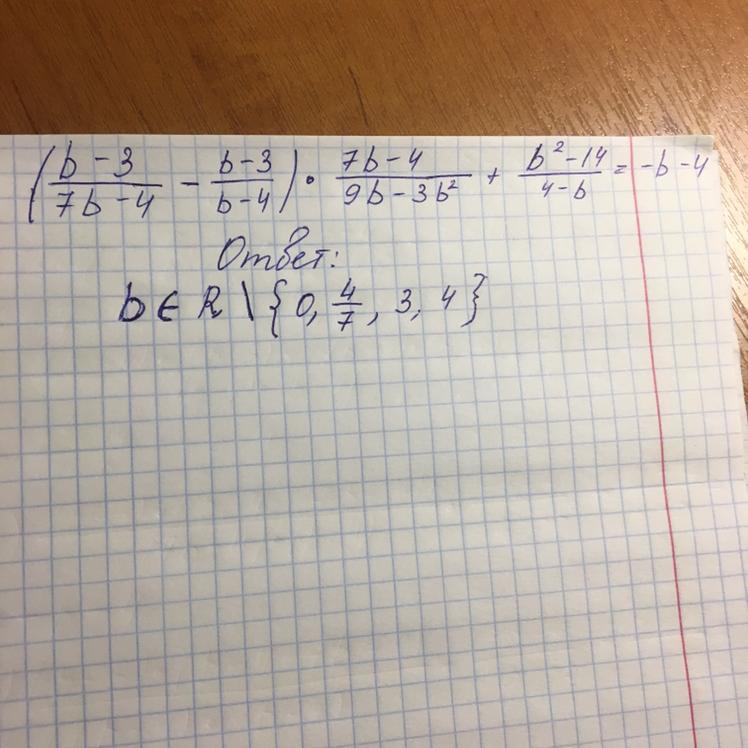 (b-3/7b-4 - b-3/b-4) · 7b-4/9b-3b² + b²-14/4-b = -b-4
Ответ:
b ∈ R \ {0, 4/7, 3, 4}